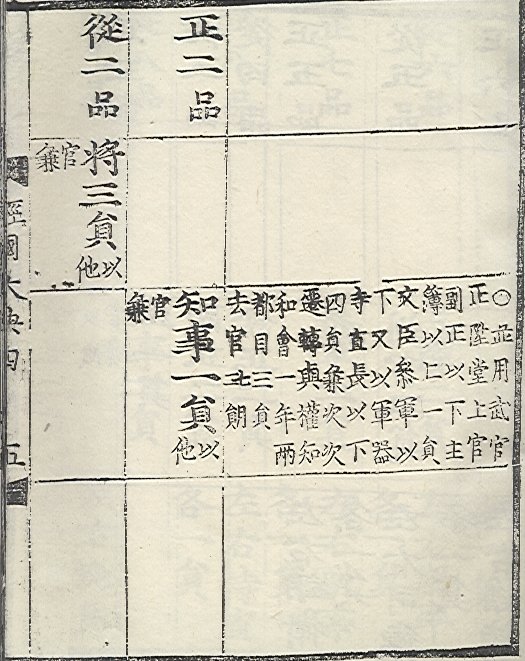 ○並用武官
正陞堂上官
副正以下主
簿以上一貟
文臣叅軍以
下又以軍器
寺直長以下
四貟兼次次
遷轉與權知
和會一年兩
都目三貟
去官
正二品
知事一貟以他
官兼
從二品
將三貟以他
官兼
經國大典四 五